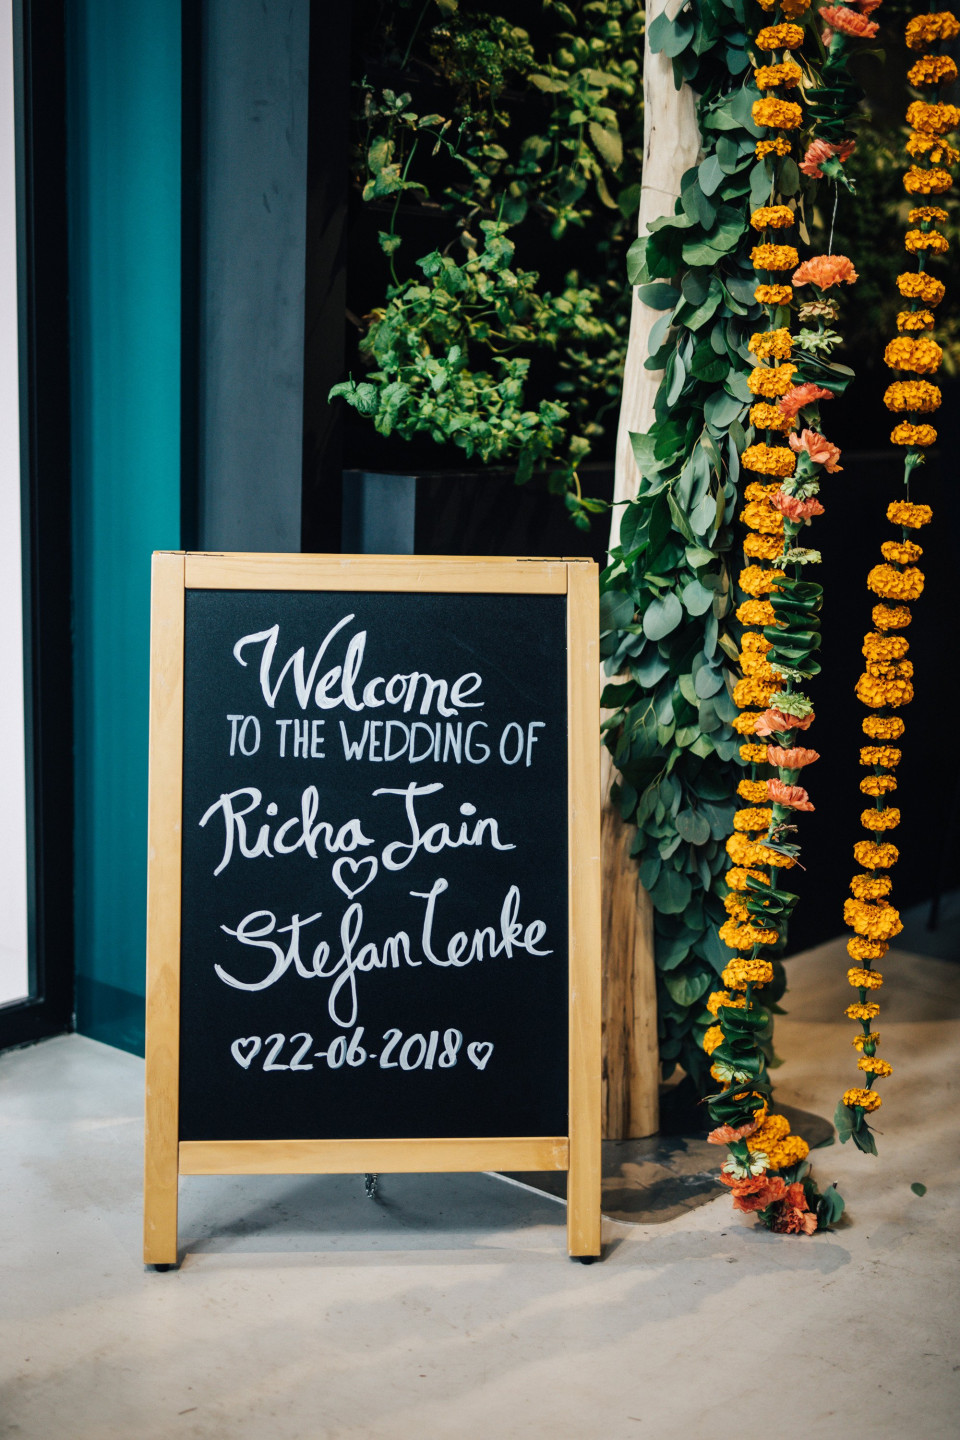 Welcome
TO THE WEDDING OF
Richa Jain
♡
Stefan Lenke
♡22-06-2018♡